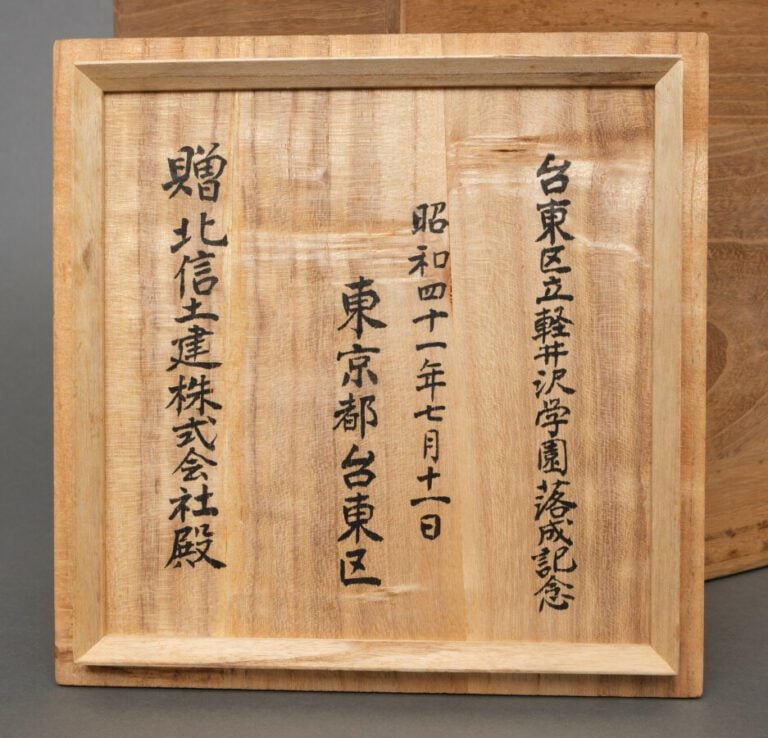 台東区立軽井沢学園落成記念
昭和四十一年七月十一日
東京都台東区
贈北信土建株式会社殿